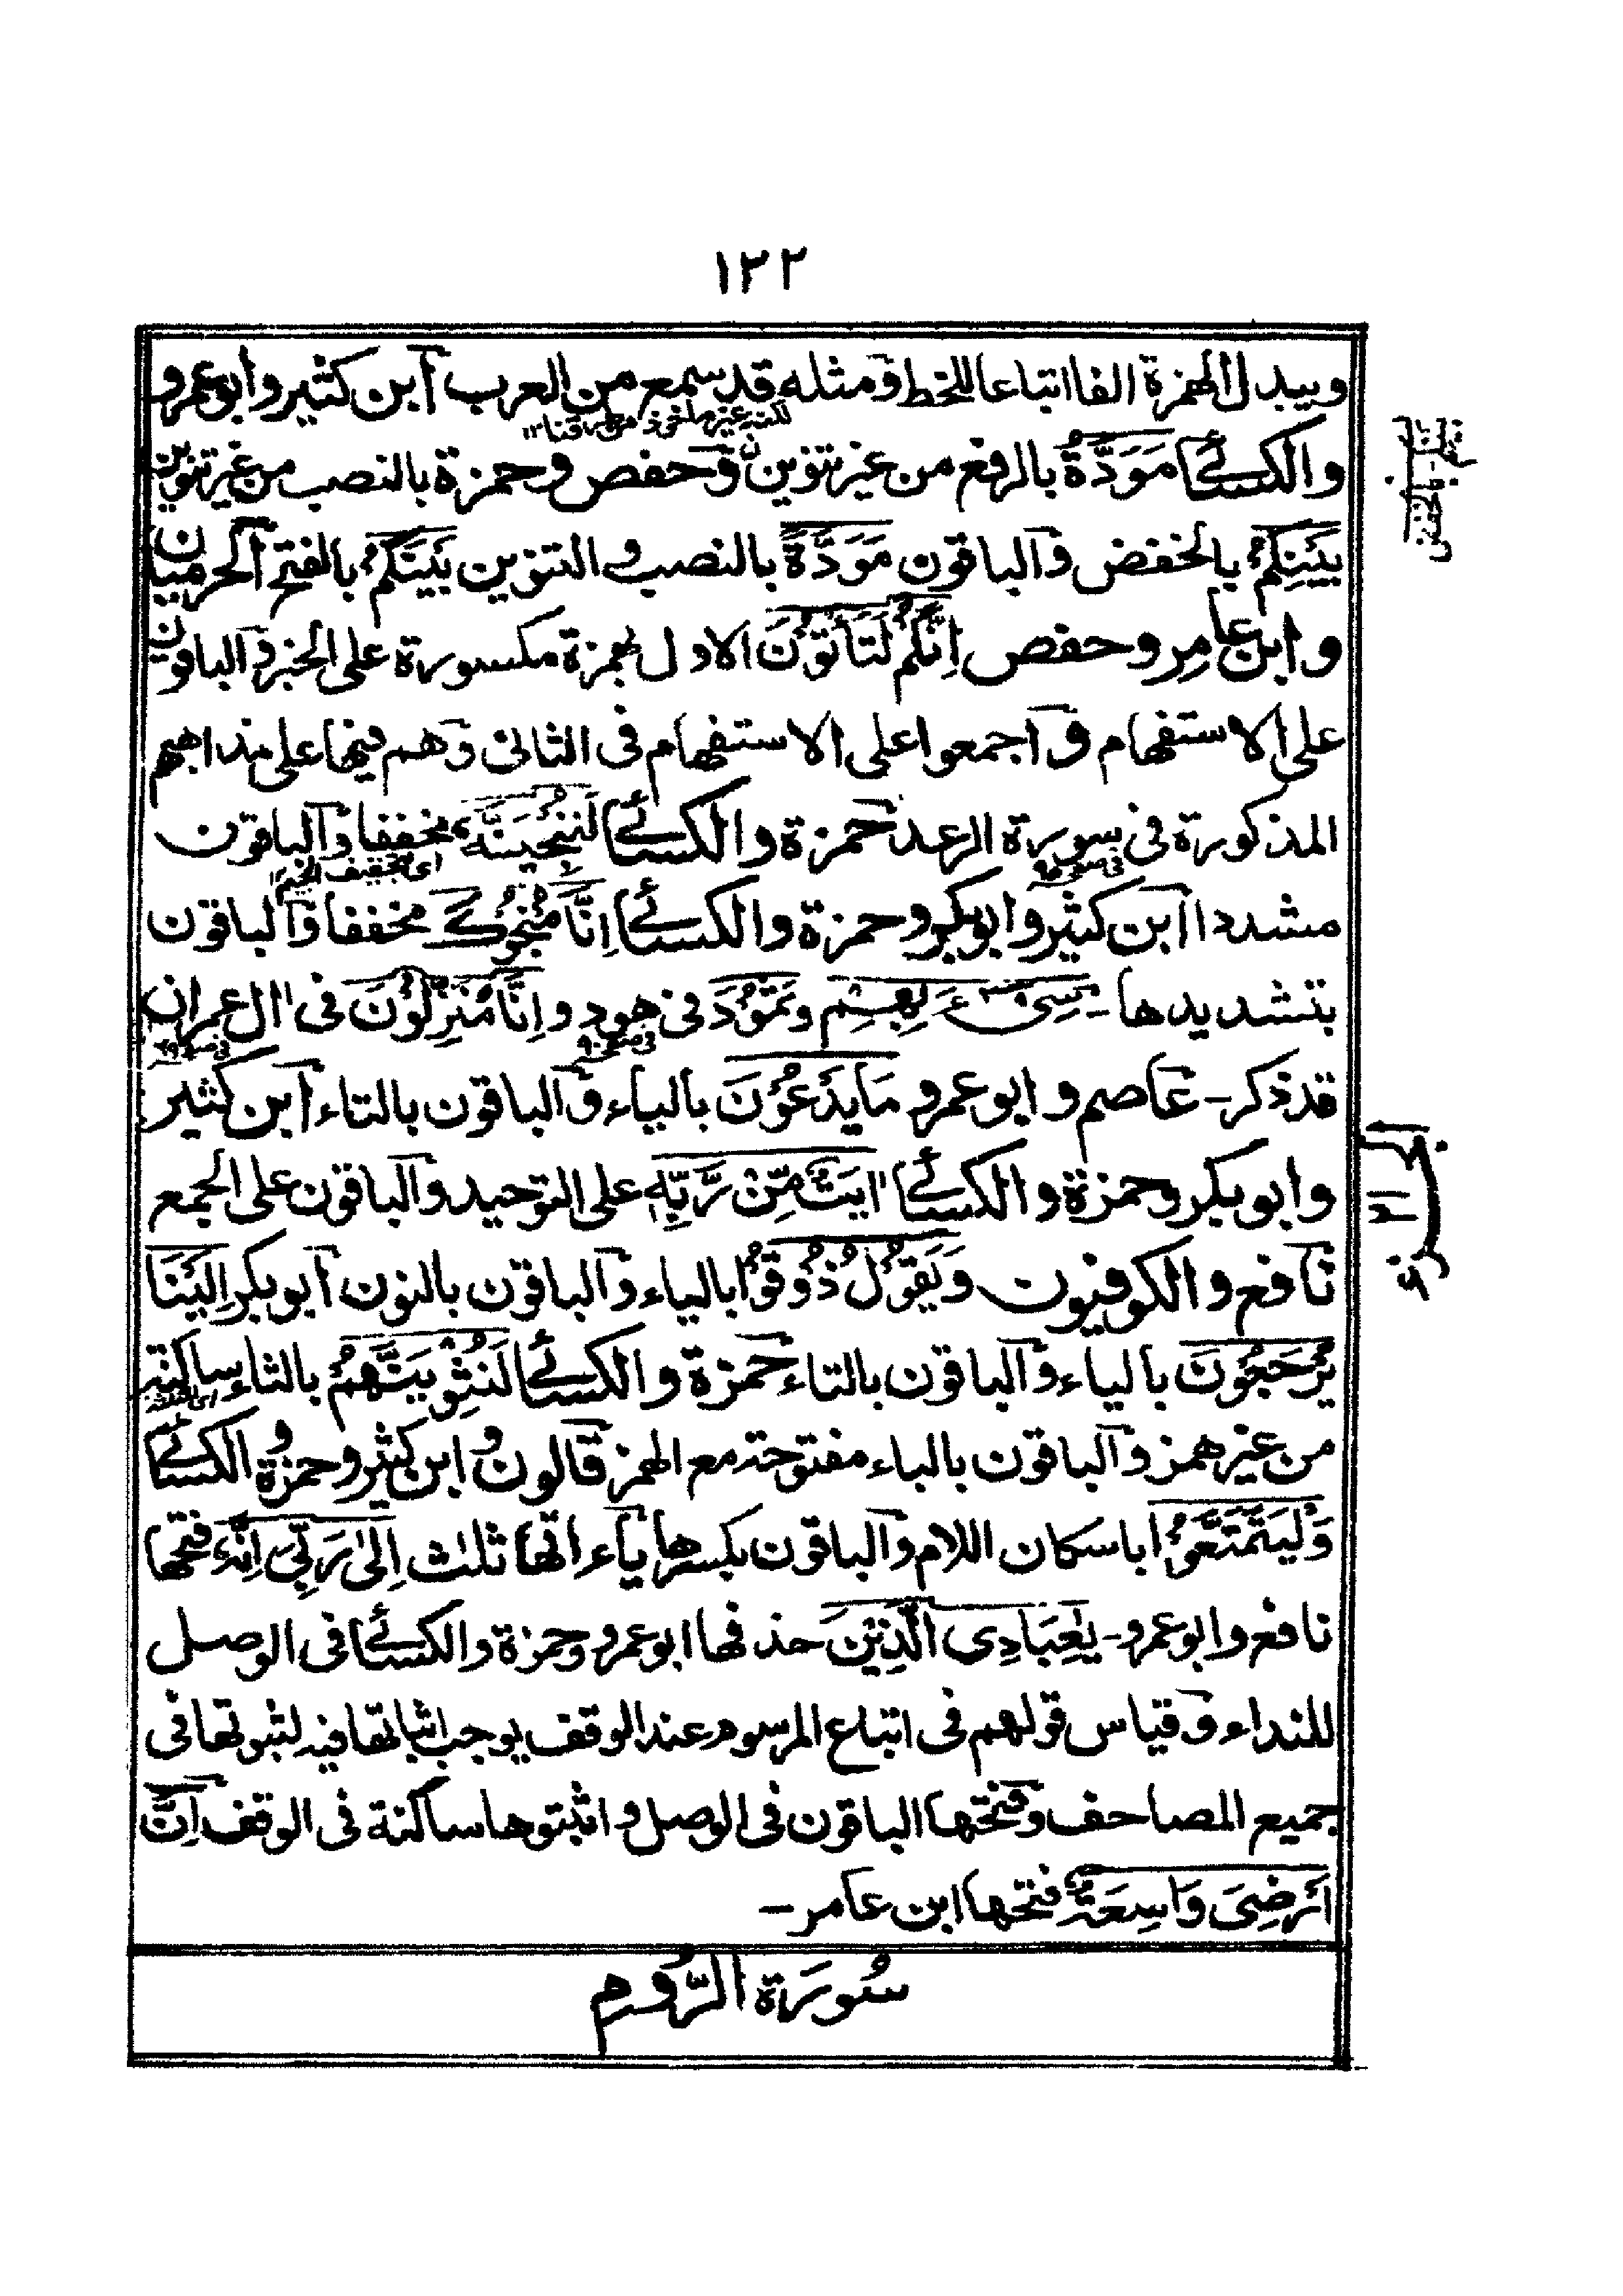 ١٣٢
ويبدل الهمزة الفا اتباعا للخط ومثله قد سمع من العرب ابن كثير وابوعمرو
والكسائے مَوَدَّةُ بالرفع من غير تنوين وحفص وحمزة بالنصب من غير تنوين
بَيْنِكُمْ بالخفض والباقون مَوَدَّةً بالنصب والتنوين بَيْنَكُمْ بالفتح الحرميان
وابن عامر وحفص اِنَّكُمْ لَتَأْتُوْنَ الاول بهمزة مكسورة على الخبر والباقون
على الاستفهام واجمعوا على الاستفهام فى الثانى وهم فيها على مذاهبهم
المذكورة فى سورة الرعد حمزة والكسائے لَنُنْجِيَنَّهٗ مخففا والباقون
فى صفحه
اى بتخفيف الجيم
مشددا ابن كثير وابوبكر وحمزة والكسائے اِنَّا مُنَجُّوْكَ مخففا والباقون
بتشديدها - سِیْٓءَ بِهِمْ وثَمُوْدَ فى هود واِنَّا مُنْزِلُوْنَ فى ال عمران
قد ذكر - عاصم وابو عمرو مَا يَدْعُوْنَ بالياء والباقون بالتاء ابن كثير
وابوبكر وحمزة والكسائے اٰيٰتٌ مِّنْ رَّبِّهٖ على التوحيد والباقون على الجمع
نافع والكوفيون وَيَقُوْلُ ذُوْقُوْا بالياء والباقون بالنون ابوبكر اِلَيْنَا
يُرْجَعُوْنَ بالياء والباقون بالتاء حمزة والكسائے لَنُثْوِيَنَّهُمْ بالثاء ساكنة
من غير همز والباقون بالباء مفتوحة مع الهمز قالون وابن كثير وحمزة والكسائے
وَلْيَتَمَتَّعُوْا باسكان اللام والباقون بكسرها ياءاتها ثلٰث اِلٰى رَبِّىْ اِنَّهٗ فتحها
نافع وابوعمرو - يٰعِبَادِىَ الَّذِيْنَ حذفها ابوعمرو وحمزة والكسائے فى الوصل
للنداء وقياس قولهم فى اتباع المرسوم عند الوقف يوجب اثباتها فيه لثبوتها فى
جميع المصاحف وفتحها الباقون فى الوصل واثبتوها ساكنة فى الوقف اِنَّ
اَرْضِىَ وَاسِعَةٌ فتحها ابن عامر -
سُورَة الرُّومِ